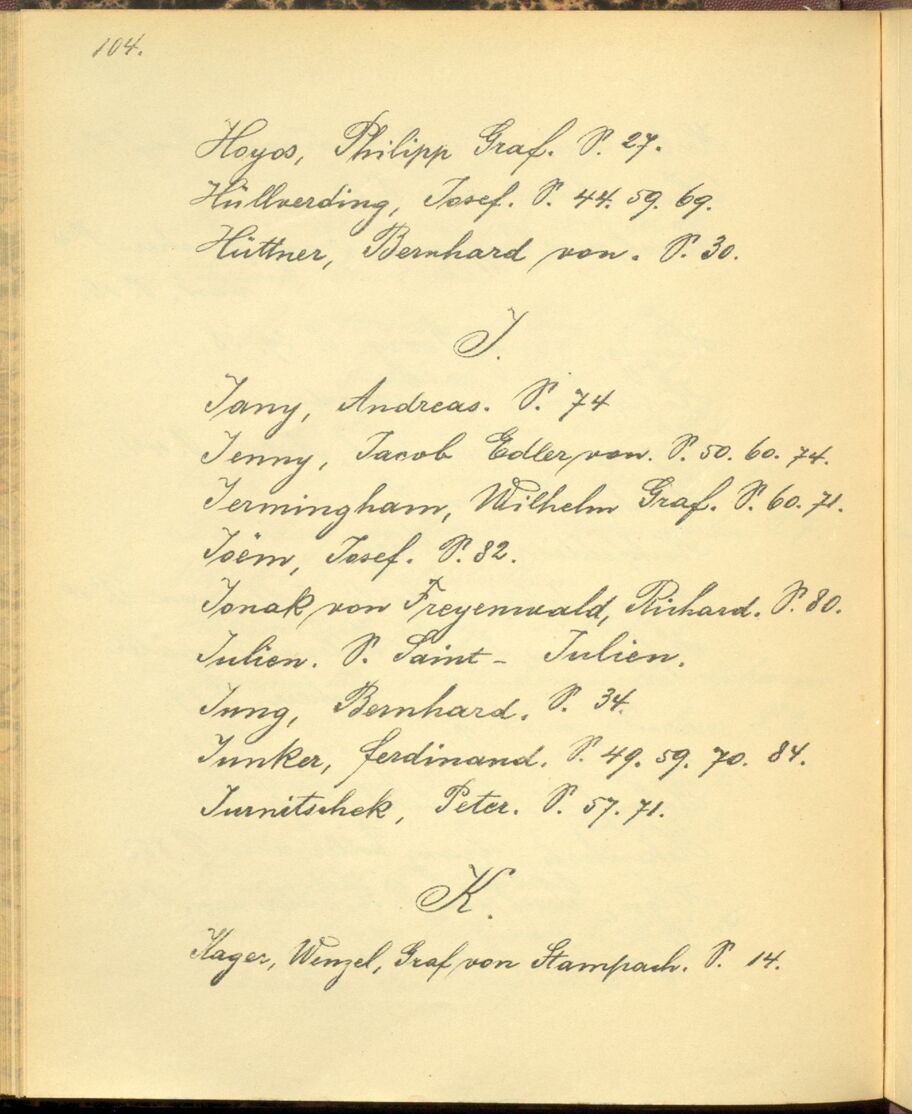 104.
Hoyos, Philipp Graf. S. 27.
Hüllverding, Josef. S. 44. 59. 69.
Hüttner, Bernhard von. S. 30.
J.
Jany, Andreas. S. 74
Jenny, Jacob Edler von. S. 50. 60. 74.
Jermingham, Wilhelm Graf. S. 60. 71.
Joëm, Josef. S. 82.
Jonak von Freyenwald, Richard. S. 80.
Julien. S. Saint - Julien.
Jung, Bernhard. S. 34.
Junker, Ferdinand. S. 49. 59. 70. 84.
Jurnitschek, Peter. S. 57. 71.
K.
Kager, Wenzel, Graf von Stampach. S. 14.